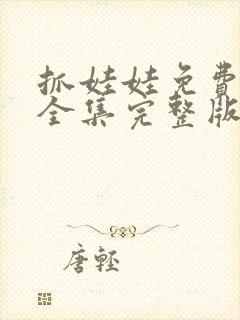 抓娃娃免費
全集完整版
唐輕